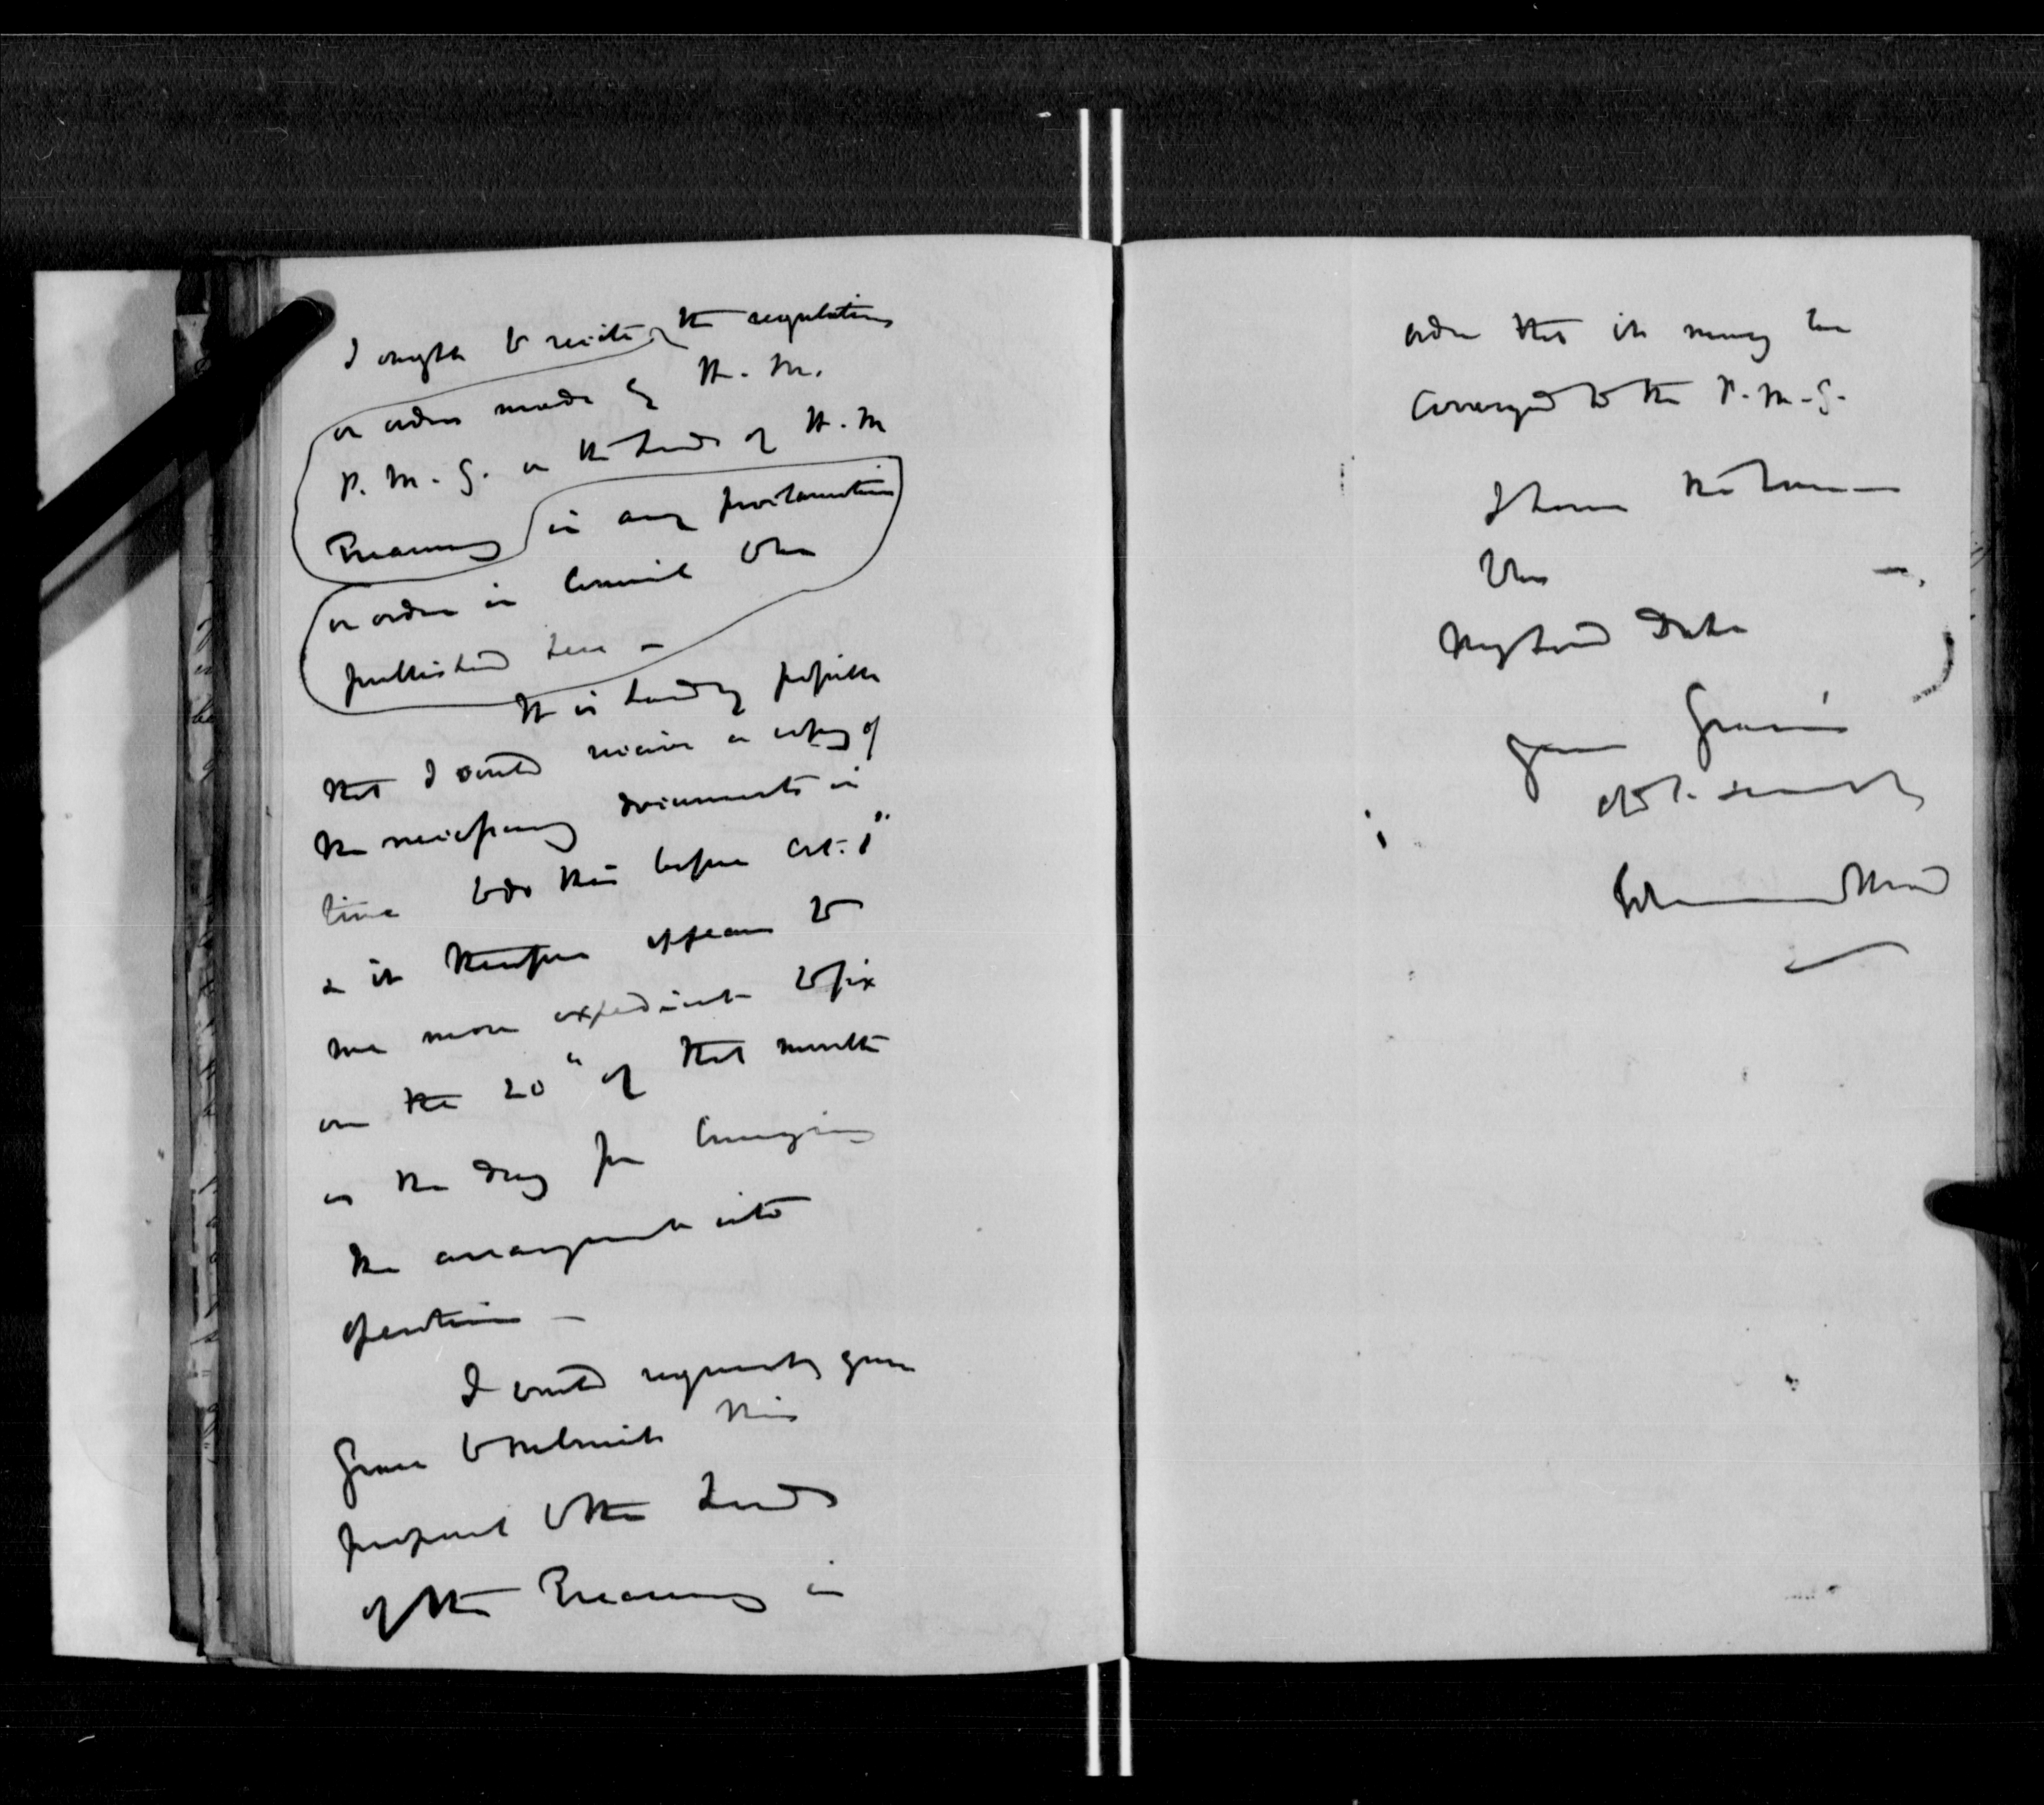 I ought to recite the regulations
or orders made by H. M.
P. M. G. or the Lords of H. M
Treasury in any proclamation
or order in Council to be
published here -
It is hardly possible
that I could receive a copy of
the necessary documents in
time to do this before Oct. 1"
& it therefore appears to
me more expedient to fix
on the 20" of that month
as the day for bringing
the arrangement into
operation -
I would request your
Grace to submit this
proposal to the Lords
of the Treasury in
order that it may be
conveyed to the P. M. G.
I have the honour
to be
My Lord Duke
your Grace's